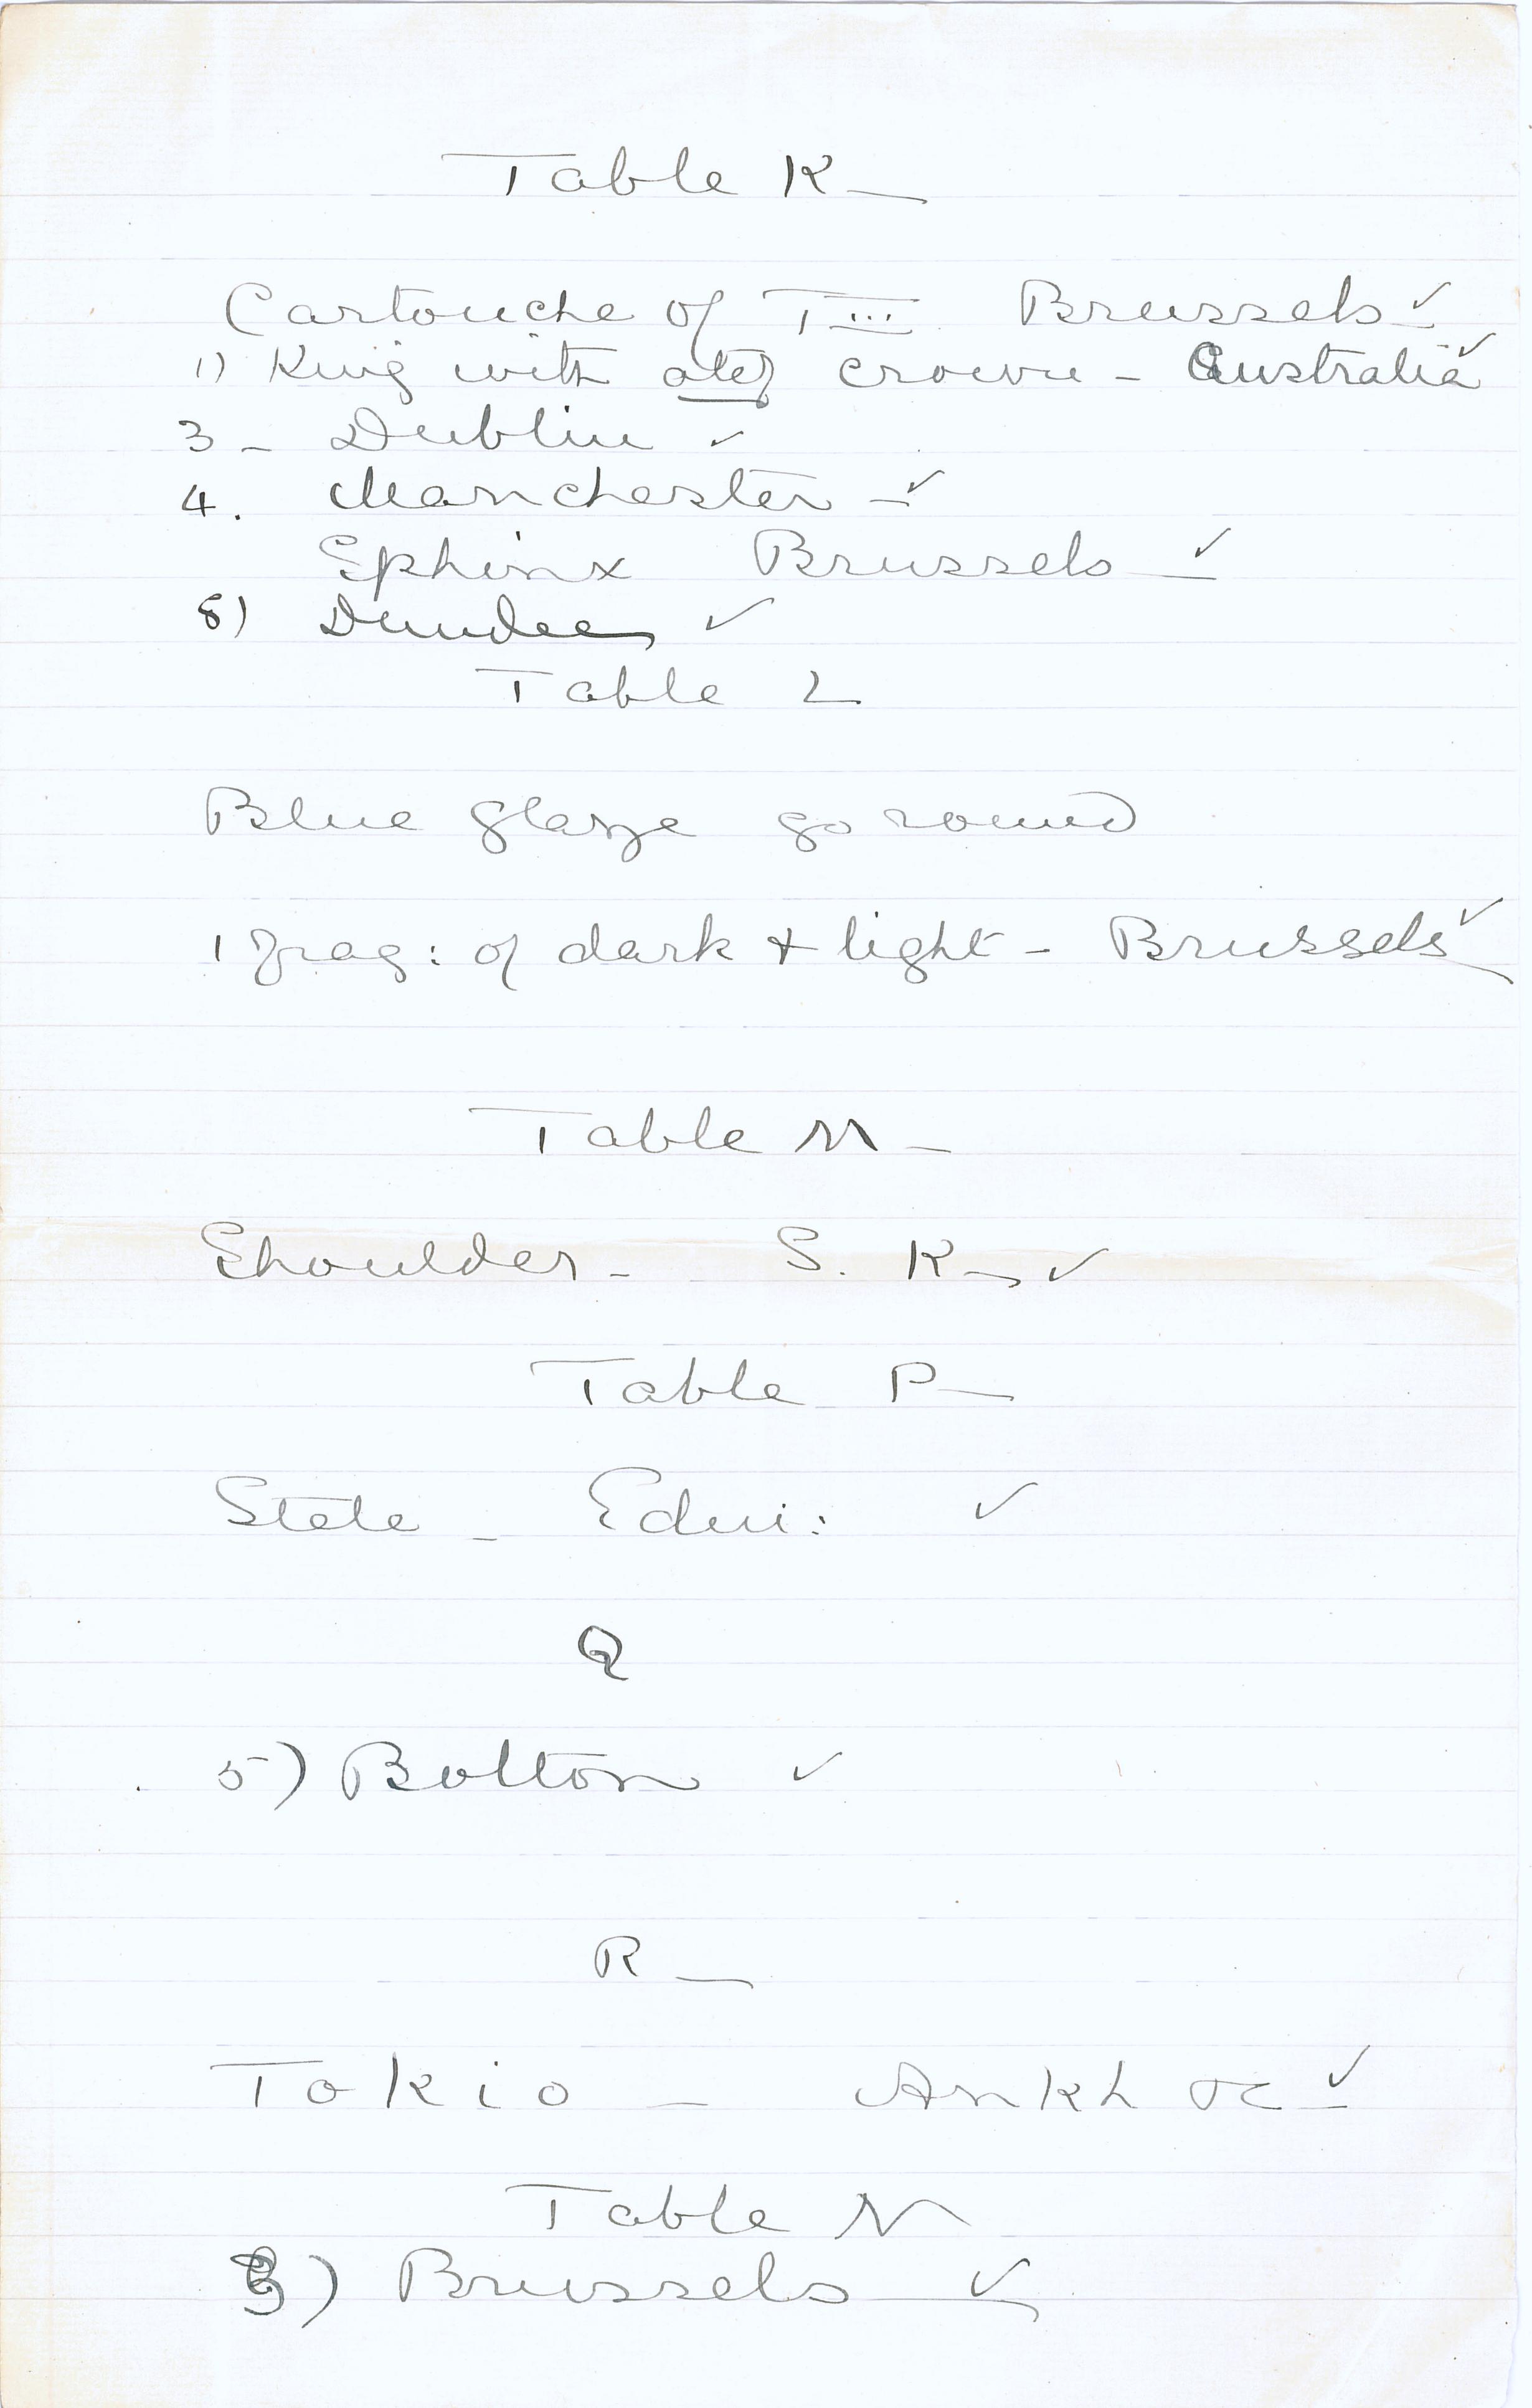 Table K -
Cartouche of TIII Brussels ✓
1) King with atef crown - Australia ✓
3 - Dublin ✓
4. Manchester - ✓
Sphinx Brussels - ✓
8) Dundee ✓
Table L
Blue glaze go round
1 frag: of dark + light - Brussels ✓
Table M -
Shoulder - S. K - ✓
Table P -
Stele - Edin: ✓
Q
5) Bolton ✓
R -
Tokio - Ankh ✓
Table N
3) Brussels - ✓